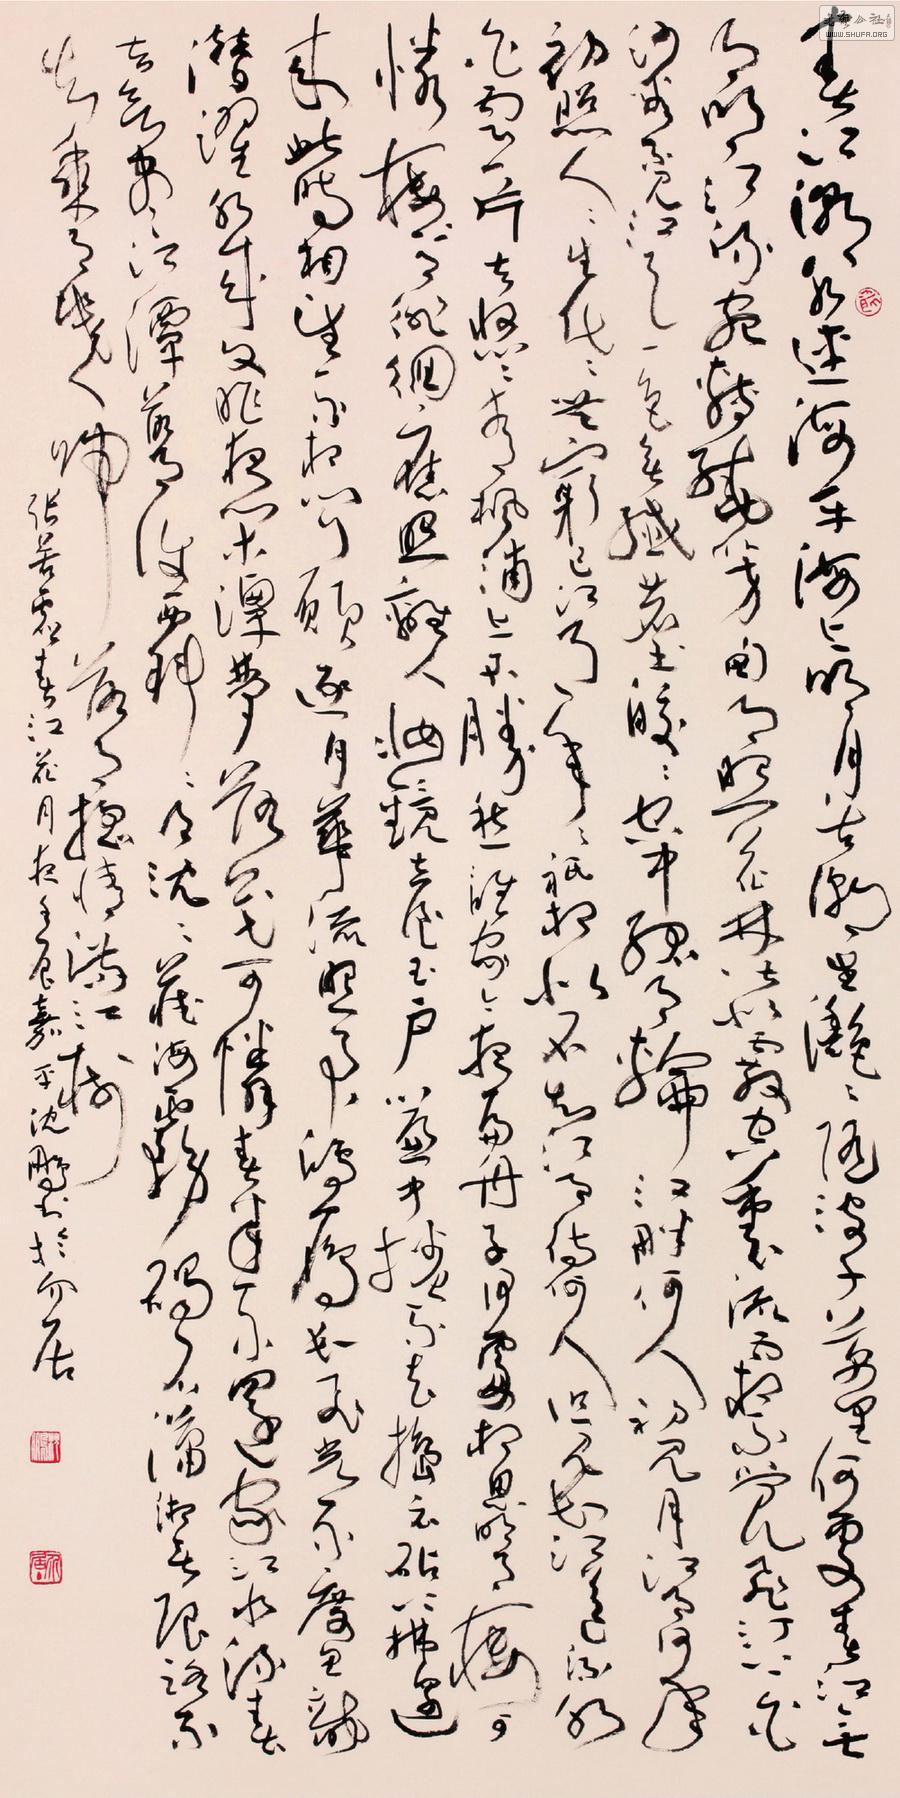 春江潮水连海平海上明月共潮生灩灩随波千万里何处春江无
月明江流宛转绕芳甸月照花林皆似霰空里流霜不觉飞汀上白
沙看不见江天一色无纤尘皎皎空中孤月轮江畔何人初见月江月何年
初照人人生代代无穷已江月年年祇相似不知江月待何人但见长江送流水
白云一片去悠悠青枫浦上不胜愁谁家今夜扁舟子何处相思明月楼可
怜楼上月徘徊应照离人妆镜台玉户帘中卷不去捣衣砧上拂还
来此时相望不相闻愿逐月华流照君鸿雁长飞光不度鱼龙
潜跃水成文昨夜闲潭梦落花可怜春半不还家江水流春
去欲尽江潭落月复西斜斜月沉沉藏海雾碣石潇湘无限路不
知乘月几人归落月摇情满江树
张若虚春江花月夜壬辰嘉平沈鹏书於介居
WWW.SHUFA.ORG